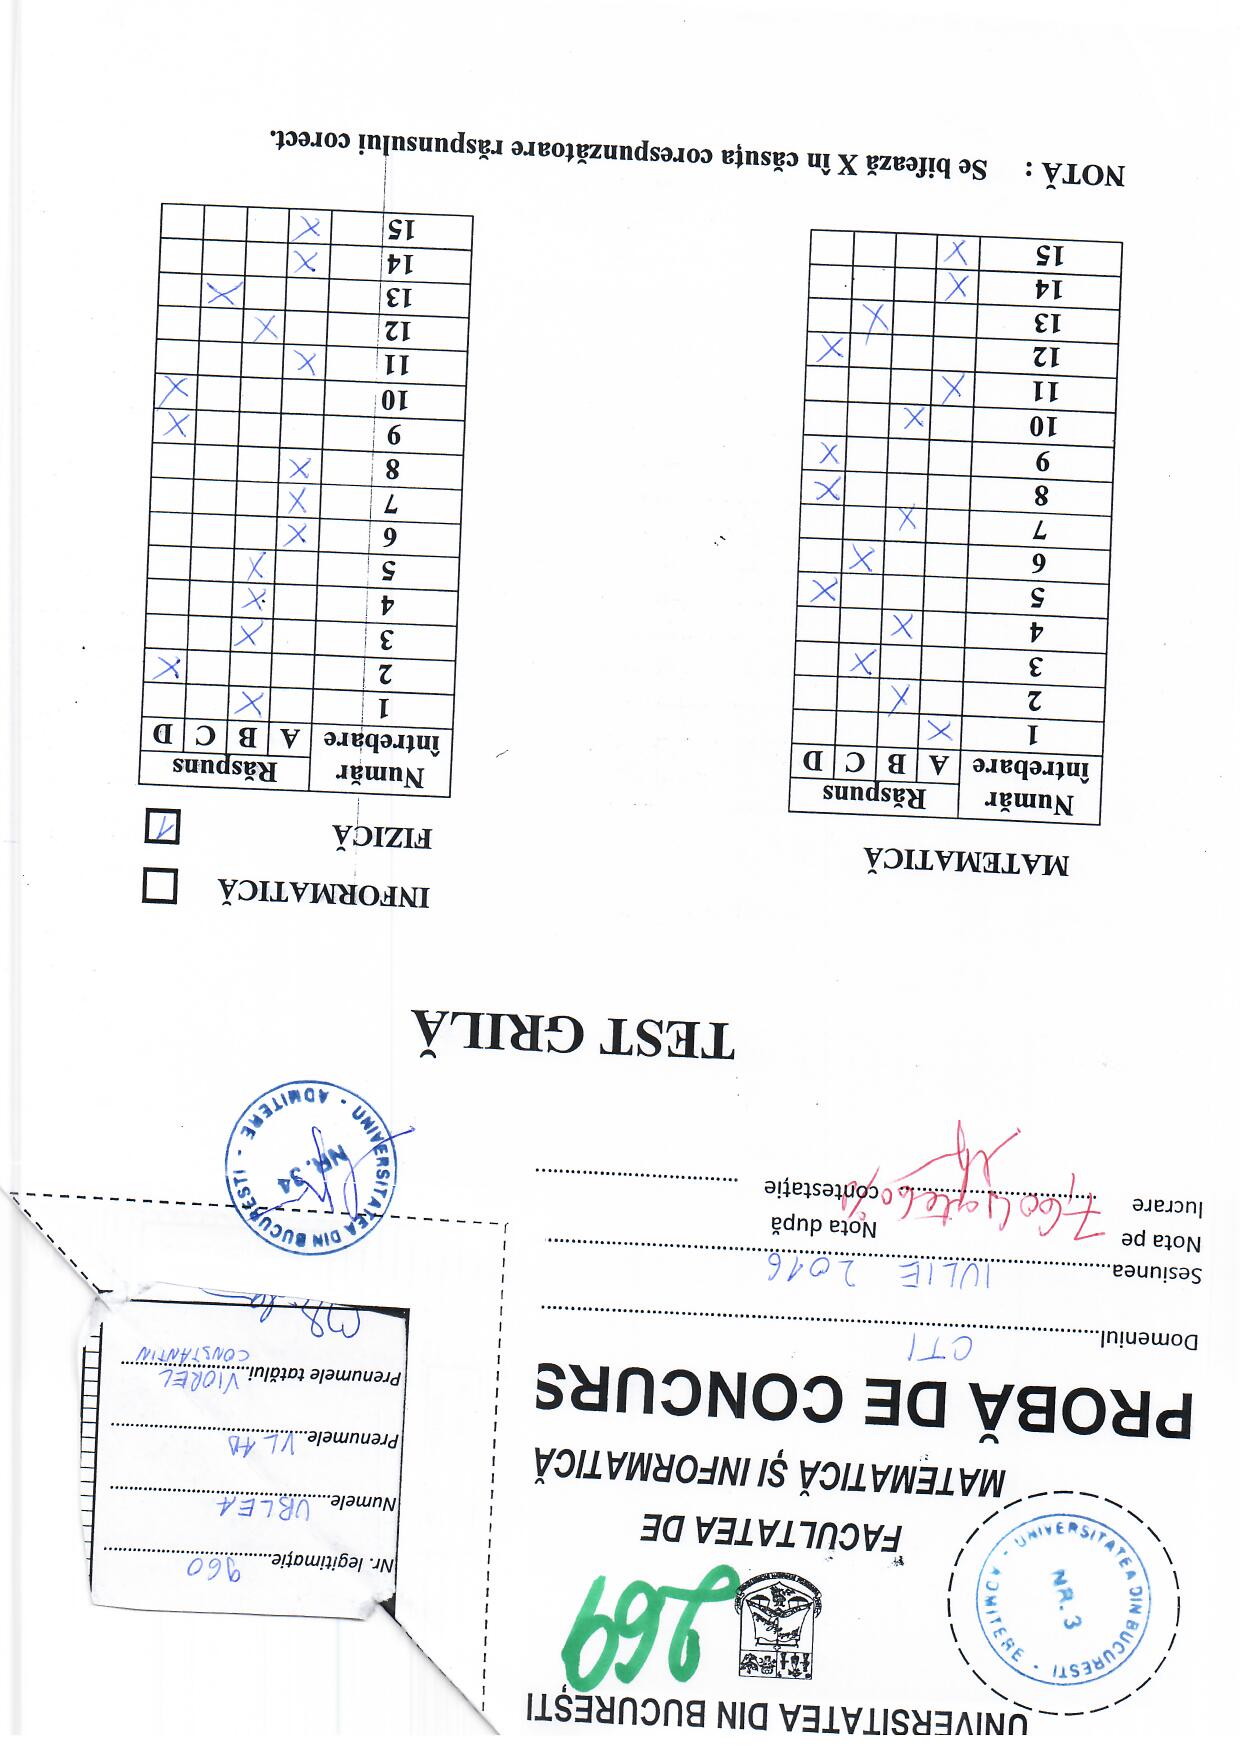 UNIVERSITATEA DIN BUCUREȘTI
269
UNIVERSITATEA DIN BUCURESTI - ADMITERE -
NR. 3
FACULTATEA DE
MATEMATICĂ ȘI INFORMATICĂ
PROBĂ DE CONCURS
Domeniul CTI
Sesiunea IULIE 2016
Nota pe lucrare 7,60
Nota după contestație
Nr. legitimație 960
Numele URLEA
Prenumele VLAD
Prenumele tatălui VIOREL
CONSTANTIN
UNIVERSITATEA DIN BUCURESTI - ADMITERE -
NR. 34
TEST GRILĂ
MATEMATICĂ
Număr întrebare Răspuns
A B C D
1 X
2 X
3 X
4 X
5 X
6 X
7 X
8 X
9 X
10 X
11 X
12 X
13 X
14 X
15 X
INFORMATICĂ
FIZICĂ 1
Număr întrebare Răspuns
A B C D
1 X
2 X
3 X
4 X
5 X
6 X
7 X
8 X
9 X
10 X
11 X
12 X
13 X
14 X
15 X
NOTĂ : Se bifează X în căsuța corespunzătoare răspunsului corect.